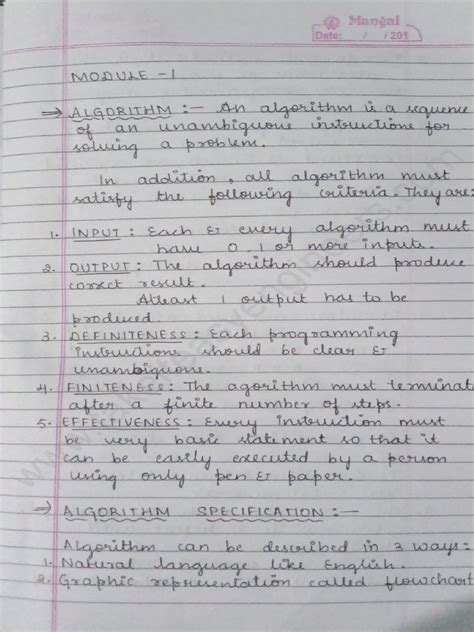 Mangal
Date: / /201
MODULE -1
⇒ ALGORITHM :- An algorithm is a sequence
of an unambiguous instructions for
solving a problem.
In addition, all algorithm must
satisfy the following criteria. They are:
1. INPUT : Each & every algorithm must
have 0, 1 or more inputs.
2. OUTPUT : The algorithm should produce
correct result.
Atleast 1 output has to be
produced.
3. DEFINITENESS : Each programming
instructions should be clear &
unambiguous.
4. FINITENESS : The agorithm must terminate
after a finite number of steps.
5. EFFECTIVENESS : Every instruction must
be very basic statement so that it
can be easily executed by a person
using only pen & paper.
⇒ ALGORITHM SPECIFICATION :-
Algorithm can be described in 3 ways:
1. Natural language like English.
2. Graphic representation called flowchart